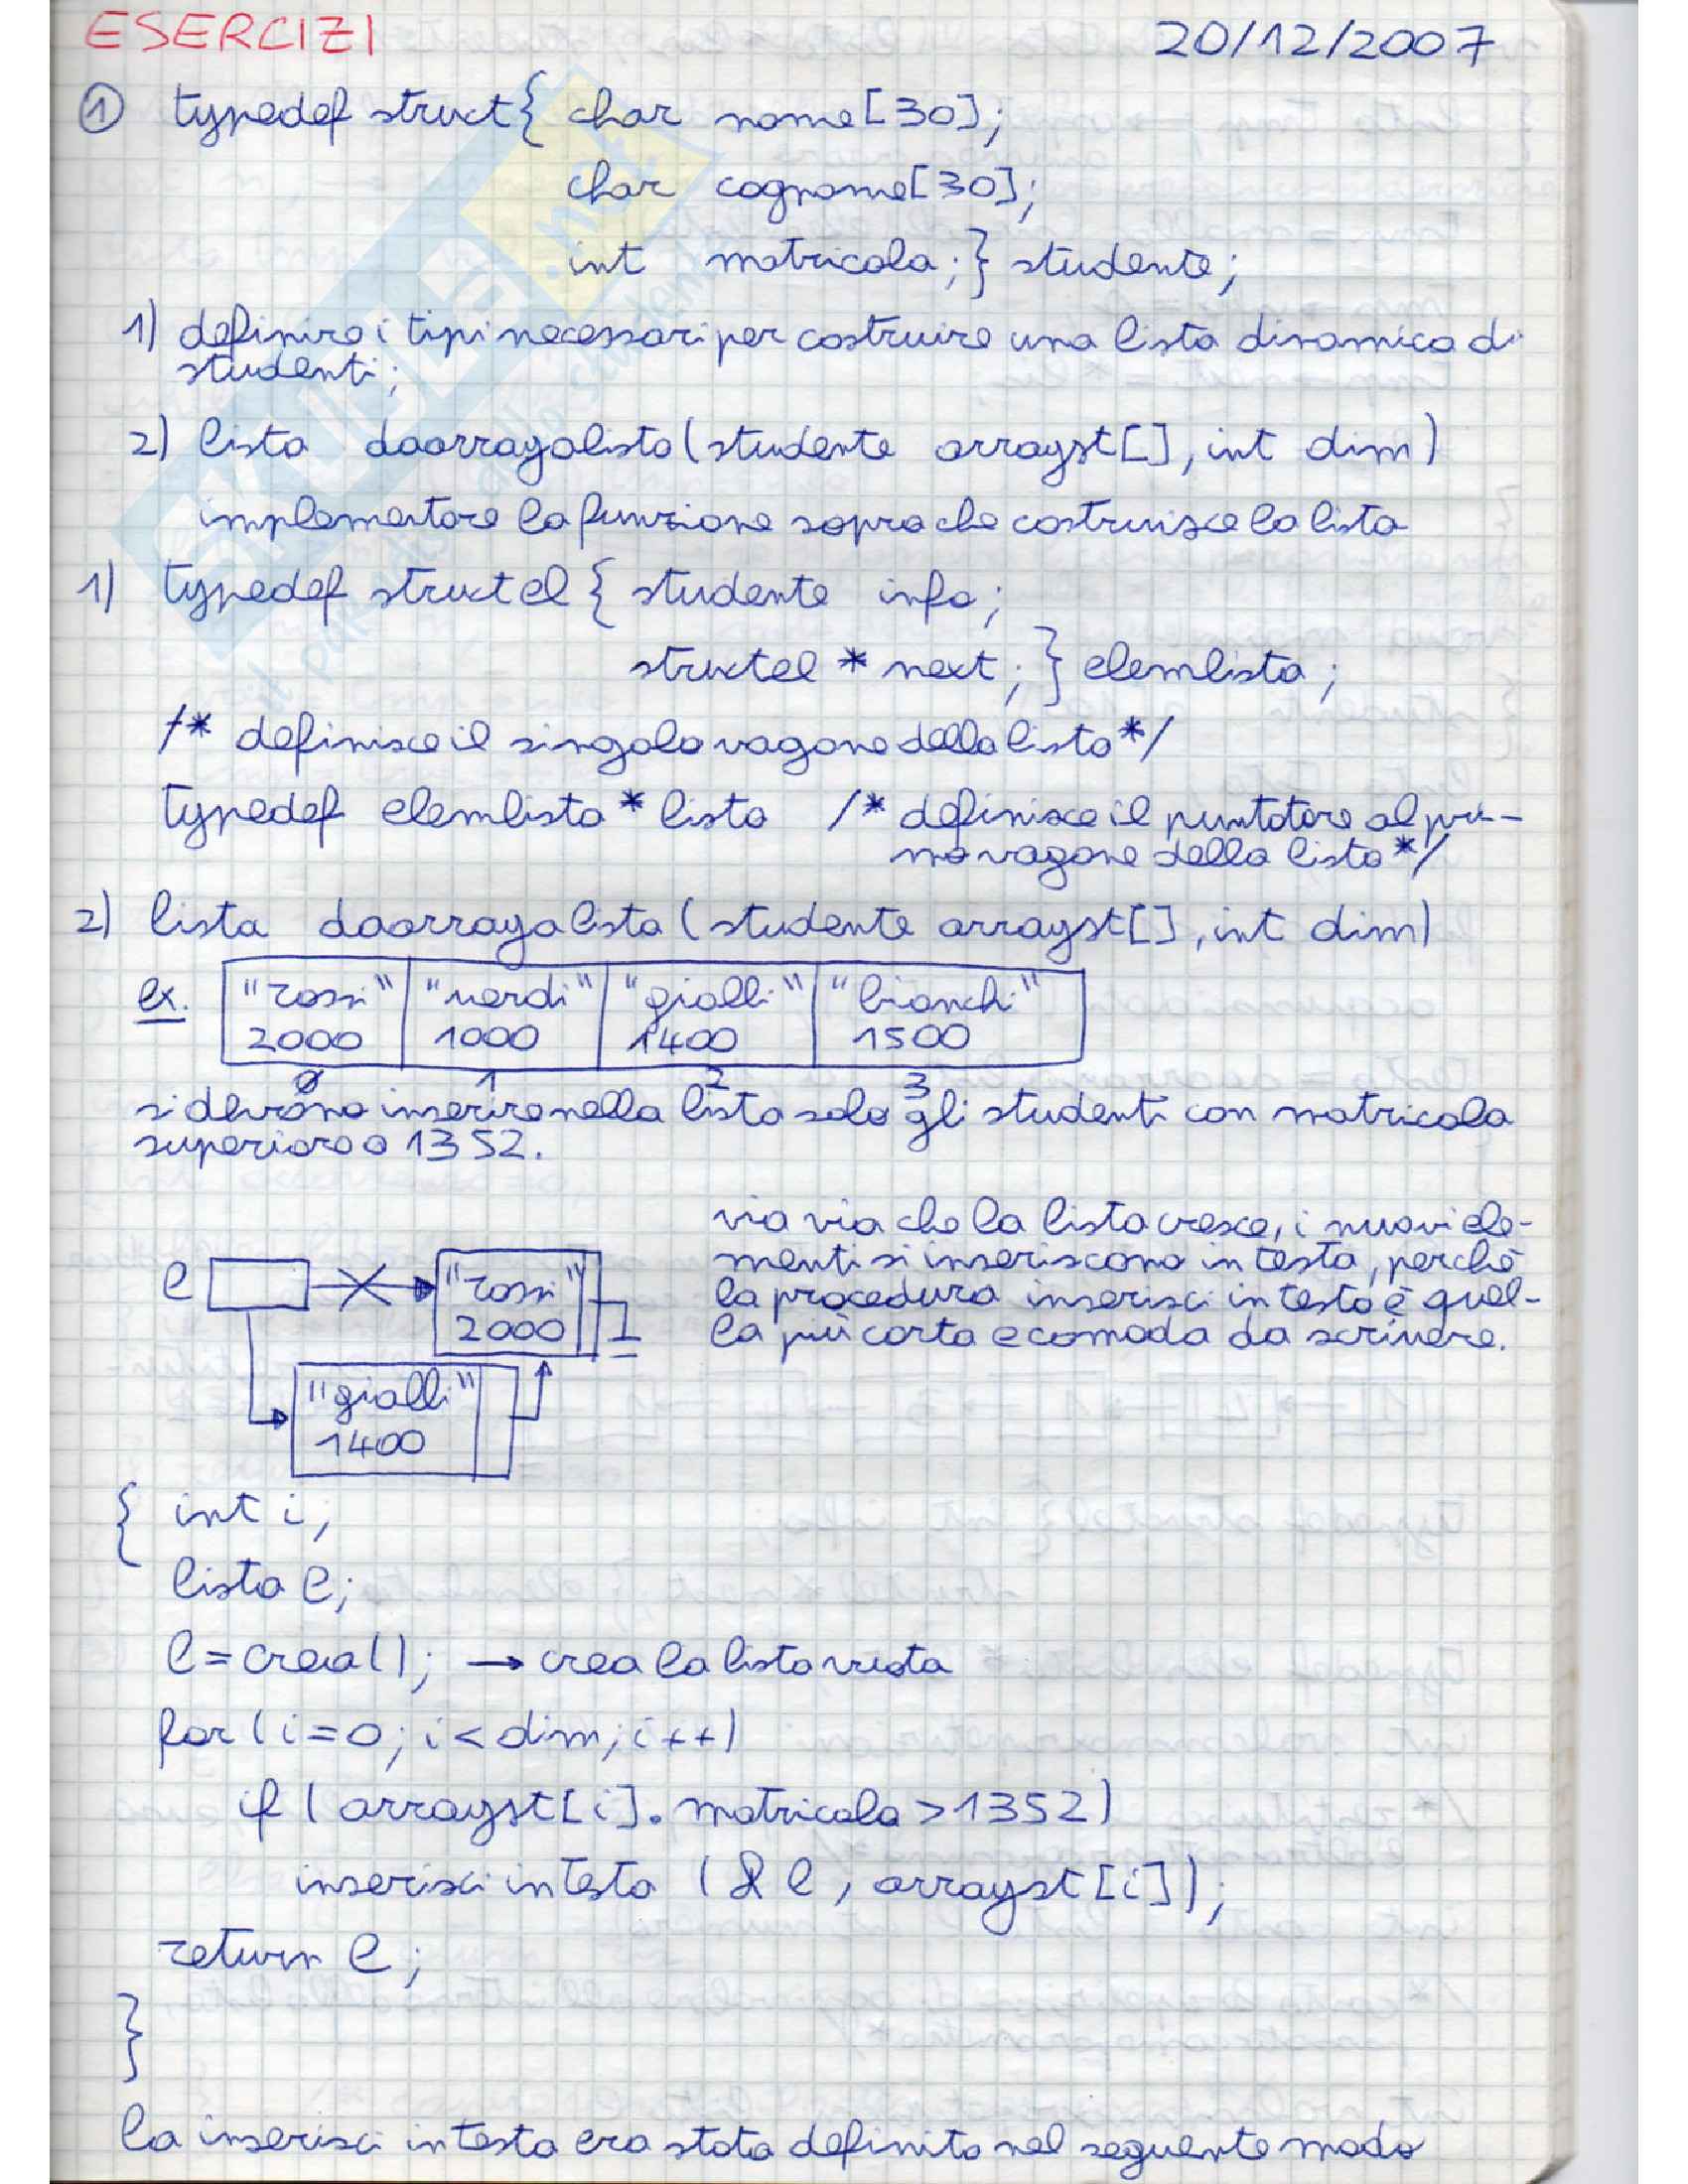 ESERCIZI 20/12/2007
① typedef struct{ char nome[30];
char cognome[30];
int matricola;} studente;
1) definire i tipi necessari per costruire una lista dinamica di
studenti;
2) lista daarrayalista(studente arrayst[], int dim)
implementare la funzione sopra che costruisce la lista
1) typedef struct el { studente info;
struct el * next; } elemlista;
/* definisce il singolo vagone della lista */
typedef elemlista * lista /* definisce il puntatore al pri-
mo vagone della lista */
2) lista daarrayalista (studente arrayst[], int dim)
ex. "rossi" "verdi" "gialli" "bianchi"
2000 1000 1400 1500
0 1 2 3
si devrono inserire nella lista solo gli studenti con matricola
superiore a 1352.
via via che la lista cresce, i nuovi ele-
menti si inseriscono in testa, perché
la procedura inserisci in testa è quel-
la più corta e comoda da scrivere.
l "rossi"
2000
"gialli"
1400
{ int i;
lista l;
l=crea(); → crea la lista vuota
for(i=0; i<dim; i++)
if (arrayst[i].matricola>1352)
inserisci in testa (&l, arrayst[i]);
return l;
}
la inserisci in testa era stata definita nel seguente modo
SKUOLA.net